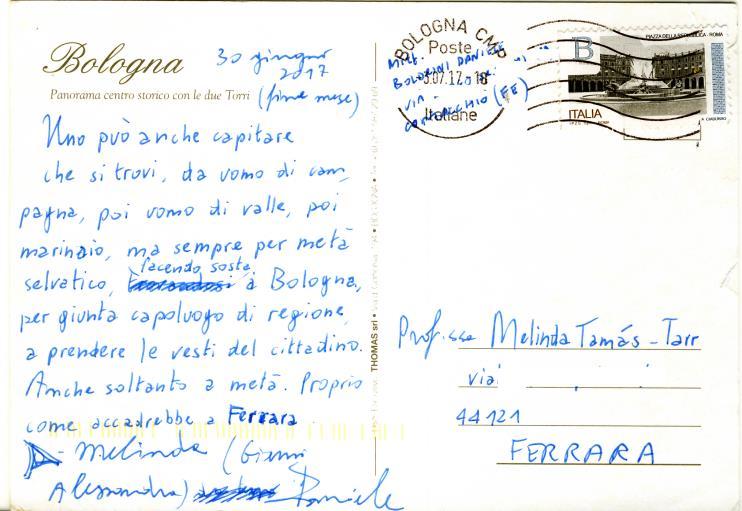 Bologna
Panorama centro storico con le due Torri
30 giugno
2017
(fine mese)
Uno può anche capitare
che si trovi, da uomo di cam
pagna, poi uomo di valle, poi
marinaio, ma sempre per metà
selvatico, facendo sosta a Bologna,
per giunta capoluogo di regione,
a prendere le vesti del cittadino.
Anche soltanto a metà. Proprio
come accadrebbe a Ferrara.
Melinda (Gianni
Alessandra) Daniele
THOMAS srl
BOLOGNA CMP
Poste
3.07.17-18
Italiane
Mitt.
BOLOGNINI DANIELE
VIA
COMACCHIO (FE)
PIAZZA DELLA REPUBBLICA - ROMA
B
ITALIA
Prof.ssa Melinda Tamás-Tarr
via
44121
FERRARA